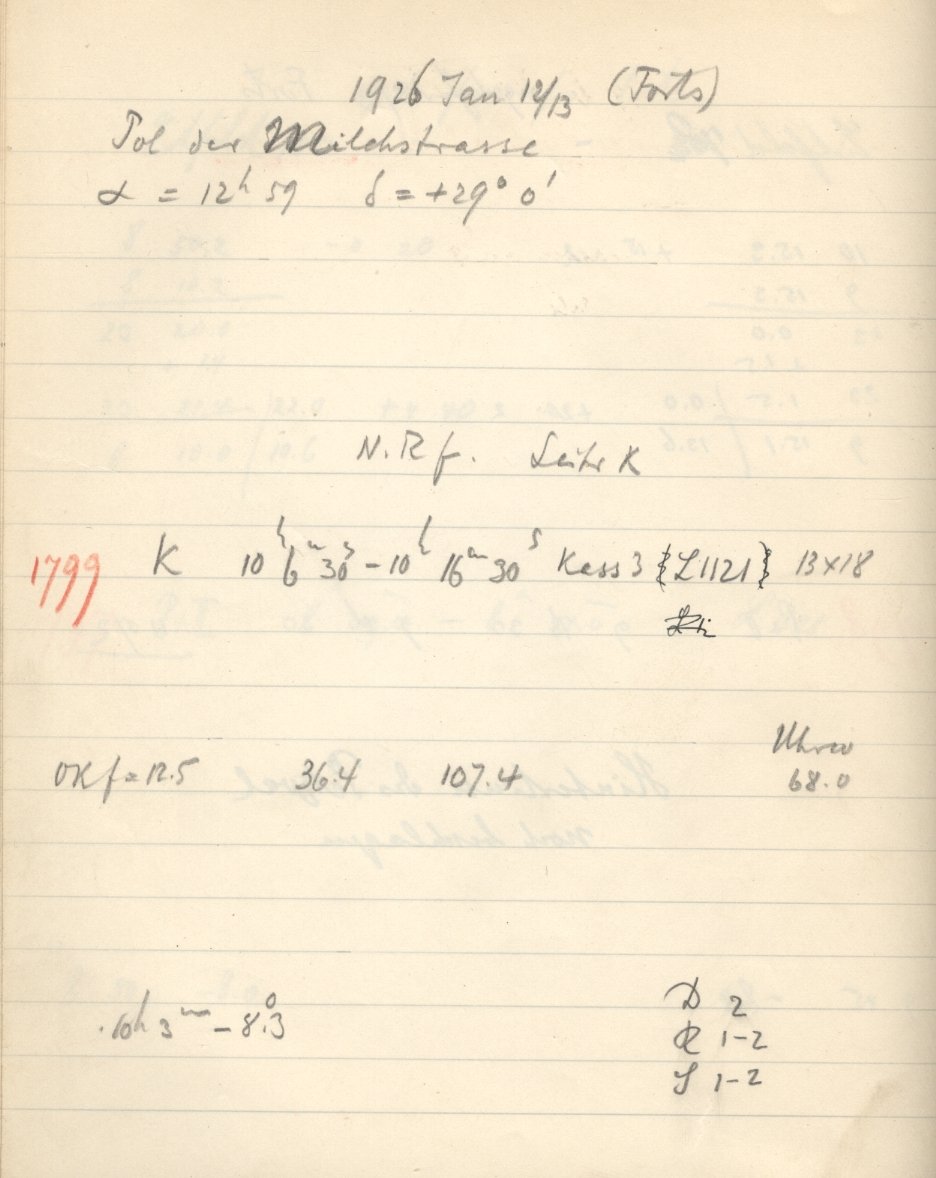 1926 Jan 12/13 (Forts)
Pol der Milchstrasse
α = 12h 59 δ = +29° 0'
N. R f. K
1799 K 10h 6m 30s - 10h 16m 30s Kass 3 {L1121} 13x18
OKf = 12.5 36.4 107.4 68.0
10h 3m - 8.3°
D 2
R 1-2
S 1-2